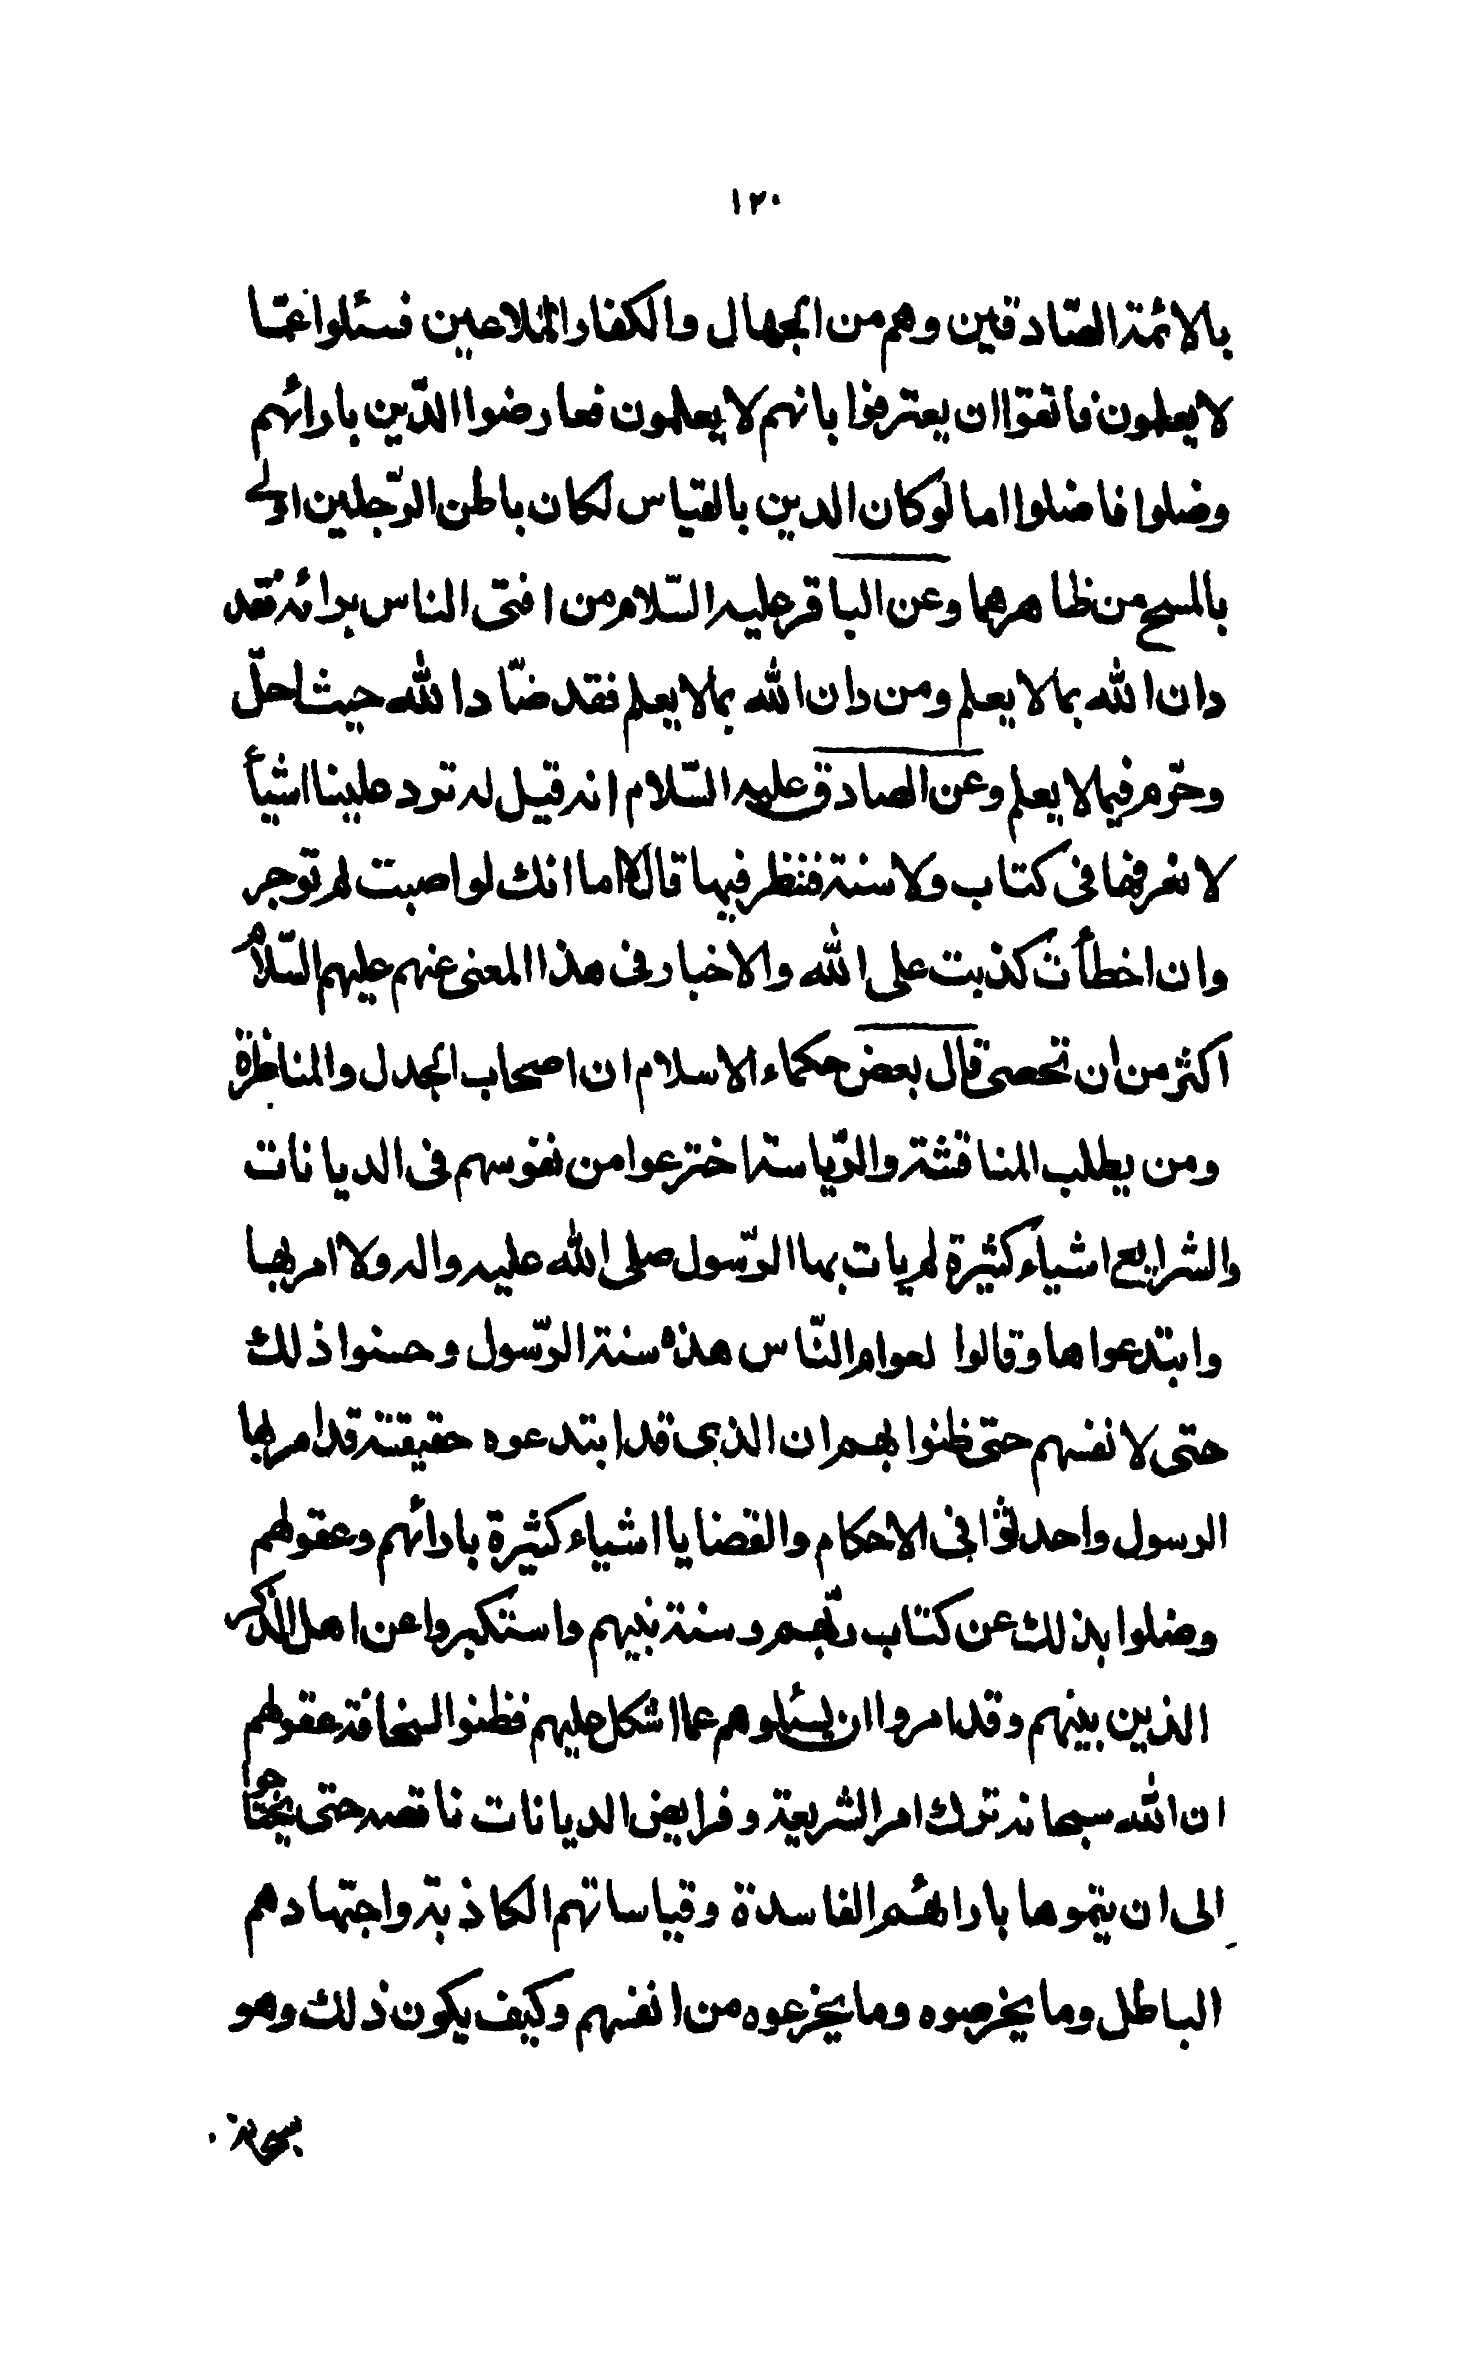 ١٢٠
بالائمة الصّادقين وهم من الجهال والكفار الملاعين فسئلوا عمّا
لا يعلمون فانفوا ان يعترفوا بانهم لا يعلمون فعارضوا الدّين بارائهم
وضلوا فاضلوا اما لو كان الدين بالقياس لكان باطن الرّجلين اولى
بالمسح من ظاهرهما وعن الباقر عليه السّلام من افتى الناس برائه فقد
دان الله بما لا يعلم ومن دان الله بما لا يعلم فقد ضادّ الله حيث احلّ
وحرّم فيما لا يعلم وعن الصادق عليه السّلام انه قيل له ترد علينا اشيأ
لا نعرفها فى كتاب ولا سنة فننظر فيها قال لا اما انك لو اصبت لم توجر
وان اخطأت كذبت على الله والاخبار فى هذا المعنى عنهم عليهم السّلام
اكثر من ان تحصى قال بعض حكماء الاسلام ان اصحاب الجدل والمناظرة
ومن يطلب المناقشة والرّياسة اخترعوا من نفوسهم فى الديانات
والشرايع اشياء كثيرة لم يات بها الرّسول صلى الله عليه واله ولا امر بها
وابتدعوها وقالوا لعوام النّاس هذه سنة الرّسول وحسنوا ذلك
حتى لانفسهم حتى ظنوا بهم ان الذى قد ابتدعوه حقيقة قد امر بها
الرسول واحدثوا فى الاحكام والقضايا اشياء كثيرة بارائهم وعقولهم
وضلوا بذلك عن كتاب ربّهم وسنة نبيهم واستكبروا عن اهل الذكر
الذين بينهم وقد امروا ان يسئلوهم عما اشكل عليهم فظنوا لسخافة عقولهم
ان الله سبحانه ترك امر الشريعة وفرايض الديانات ناقصه حتى يحتاجوا
الى ان يتموها بارائهم الفاسدة وقياساتهم الكاذبة واجتهادهم
الباطل وما يخرصوه وما يخرعوه من انفسهم وكيف يكون ذلك وهو
سبحانه